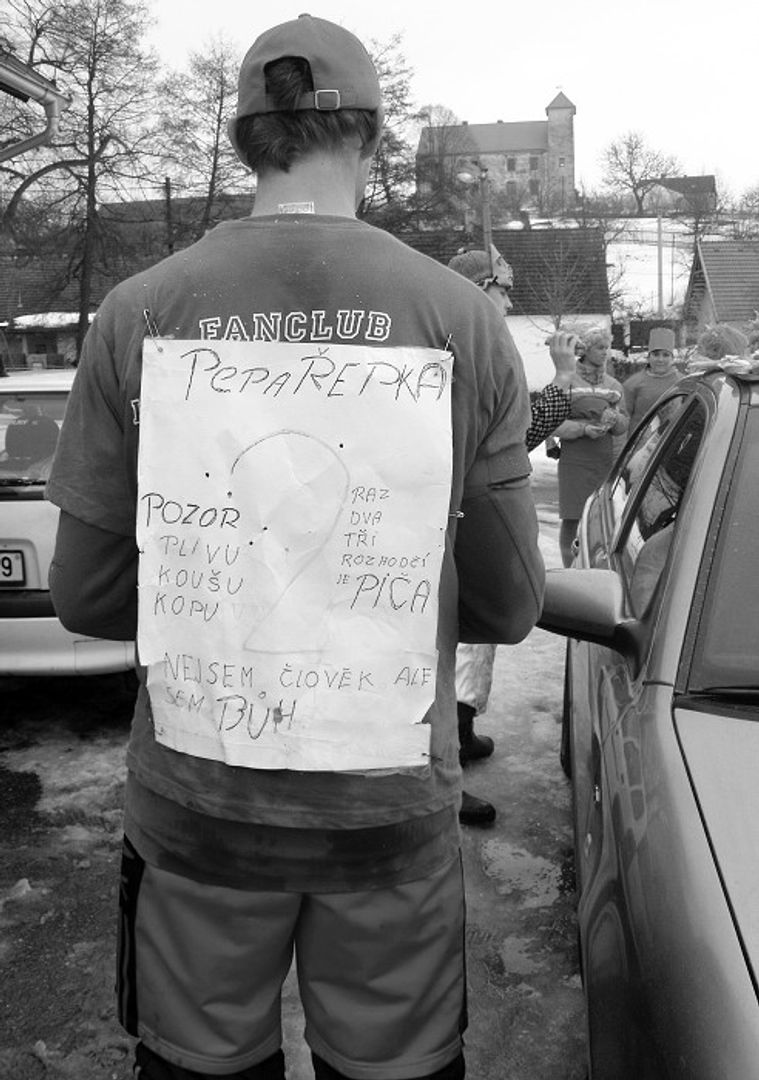 FANCLUB
PEPAŘEPKA
POZOR
PLIVU
KOUŠU
KOPU
RAZ
DVA
TŘI
ROZHODČÍ
JE PIČA
NEJSEM ČLOVĚK ALE
SEM BŮH
9